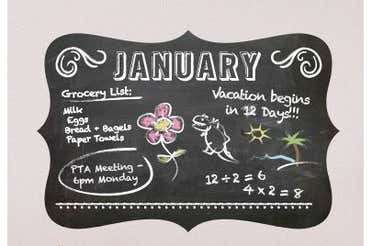 JANUARY
Grocery List:
Milk
Eggs
Bread + Bagels
Paper Towels
PTA Meeting -
6pm Monday
Vacation begins
in 12 Days!!!
12 ÷ 2 = 6
4 x 2 = 8